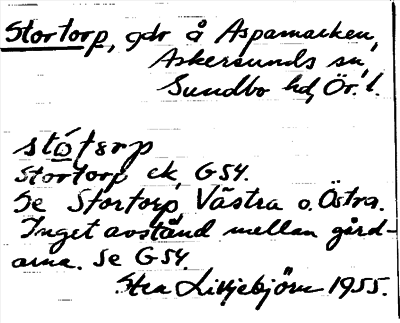 Stortorp, gdr å Aspamarken,
Askersunds sn,
Sundbo hd, Ör. l.
stó̲tərp
Stortorp ek, G 54.
Se Stortorp, Västra o. Östra.
Inget avstånd mellan gård-
arna. Se G 54.
Sten Liljebjörn 1955.